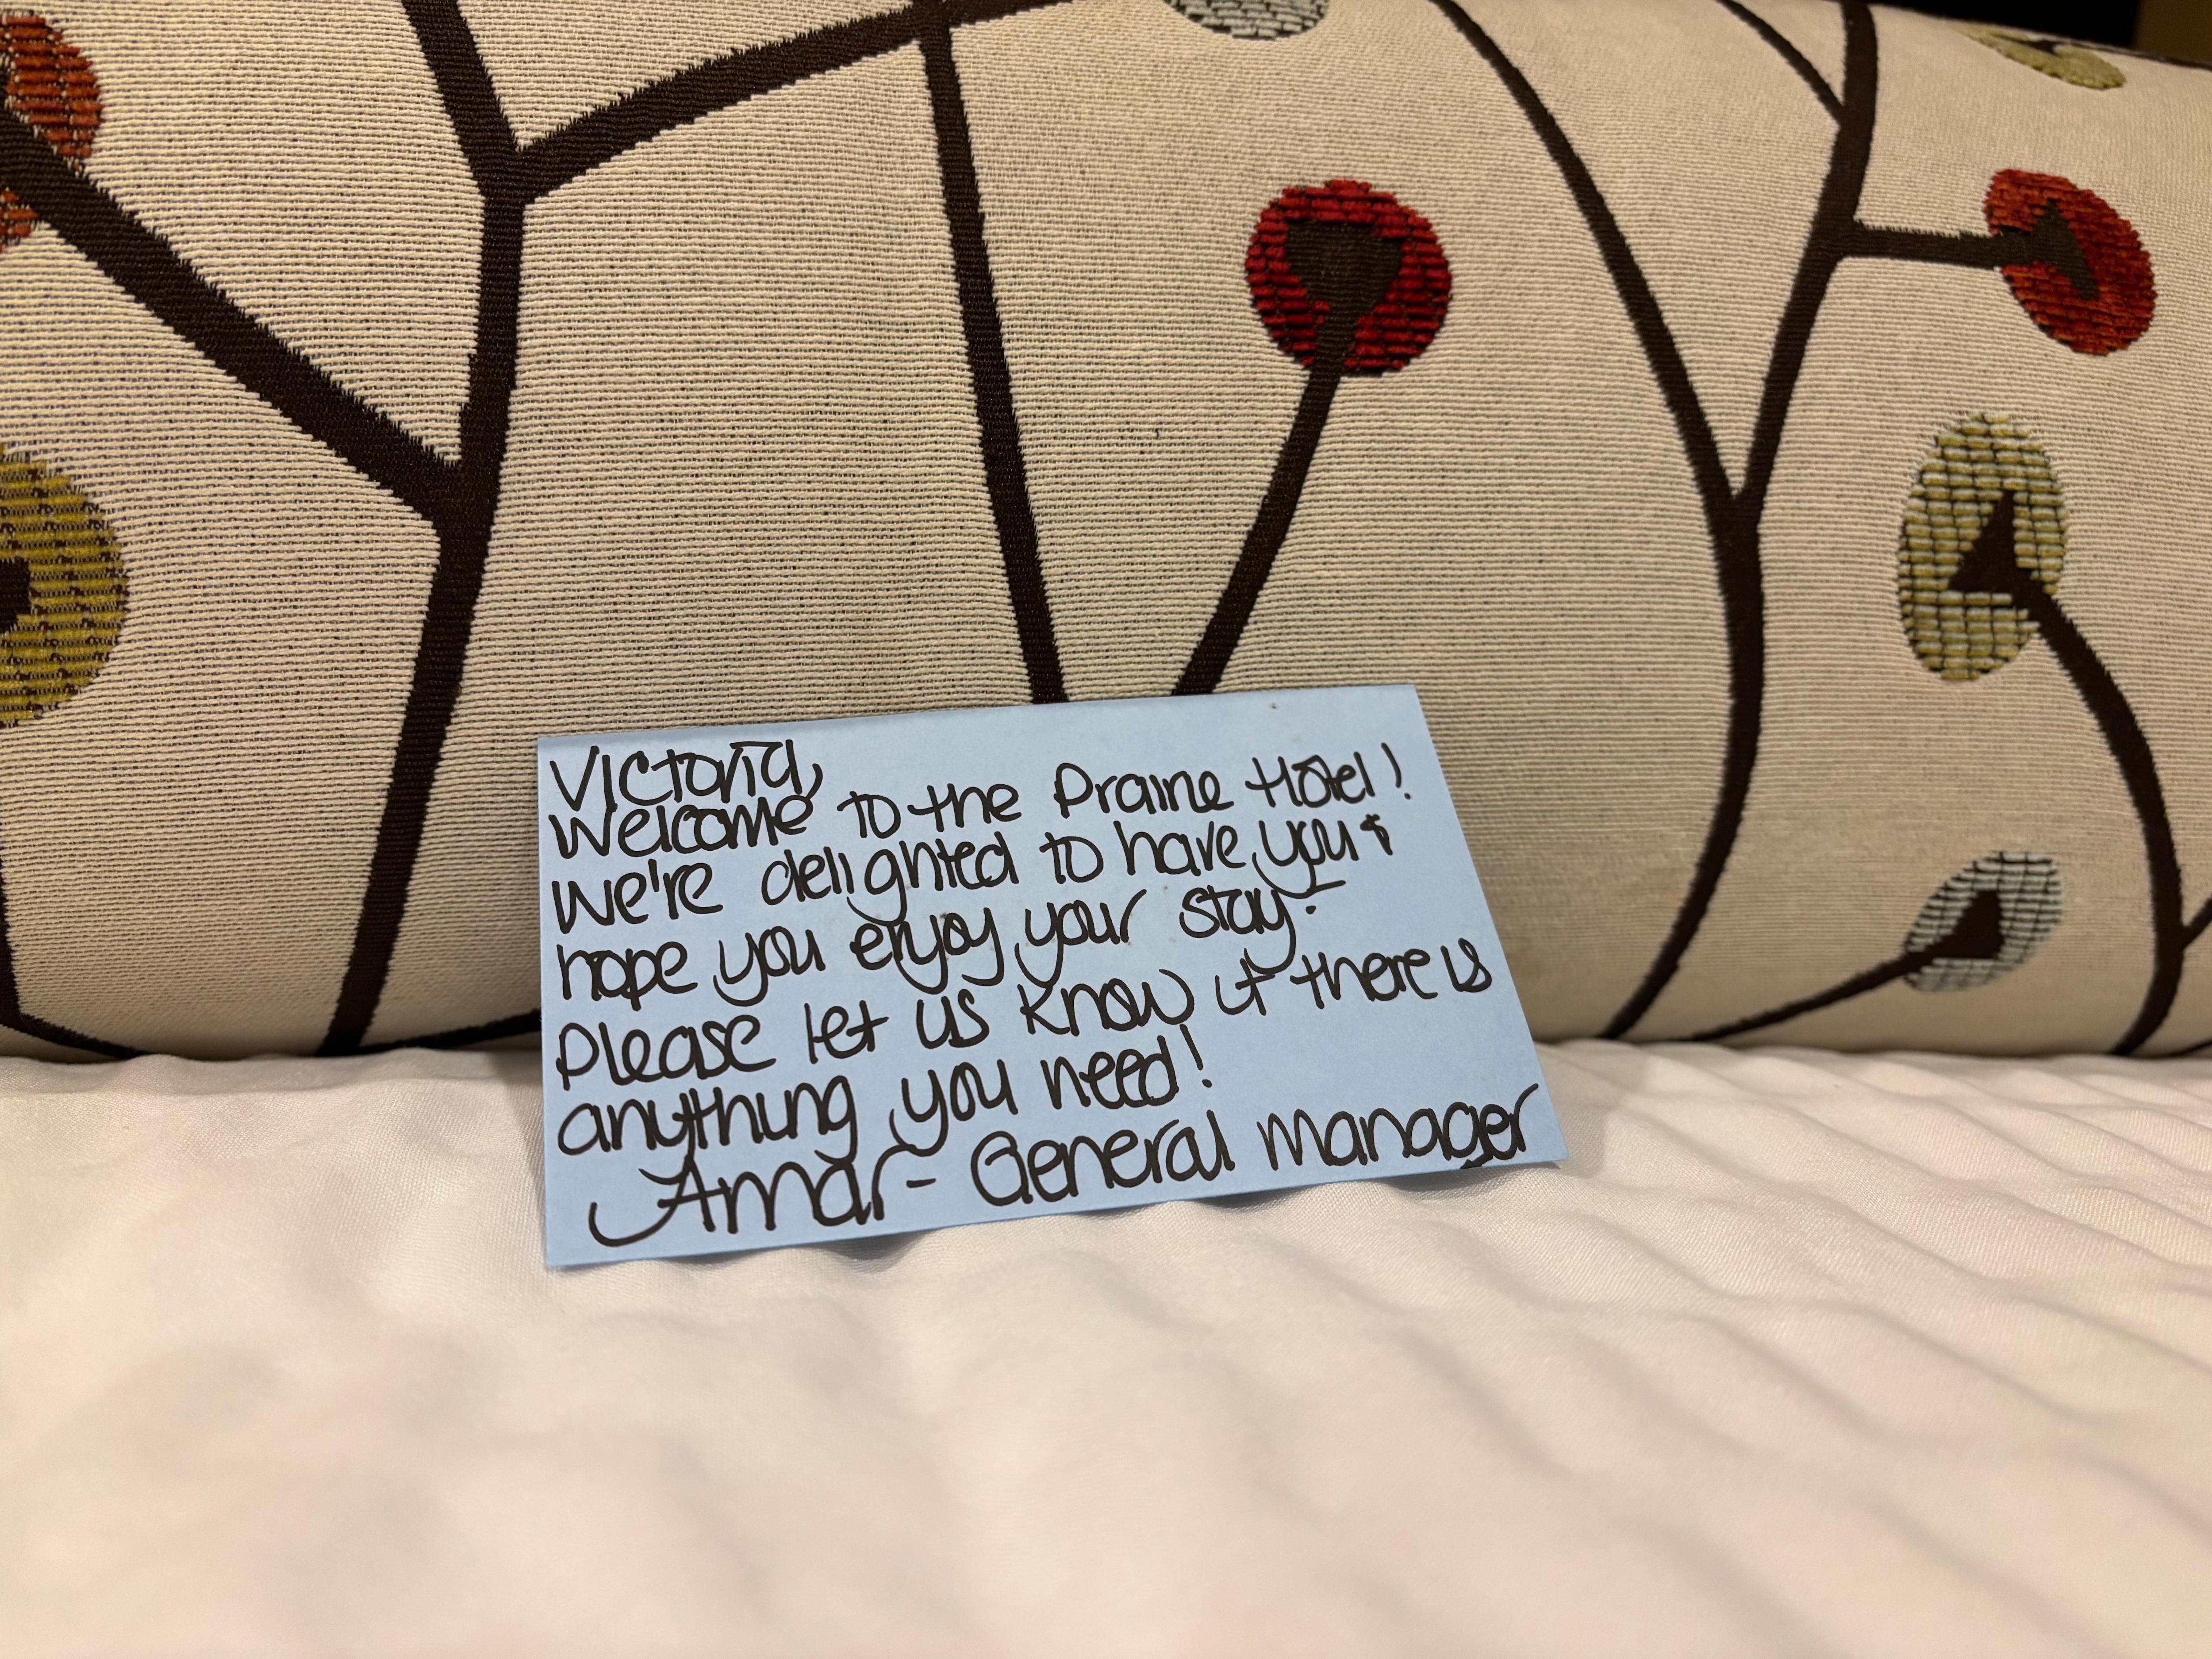 Victoria,
Welcome to the Prairie Hotel!
We're delighted to have you &
hope you enjoy your stay.
Please let us know if there is
anything you need!
Amar - General Manager